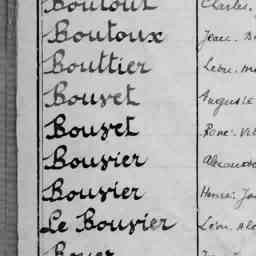 Boutout Charles
Boutoux Jean
Bouttier
Bouvet Auguste
Bouvet René
Bouvier Alexandre
Bouvier Henri
Le Bouvier Léon
Boyer